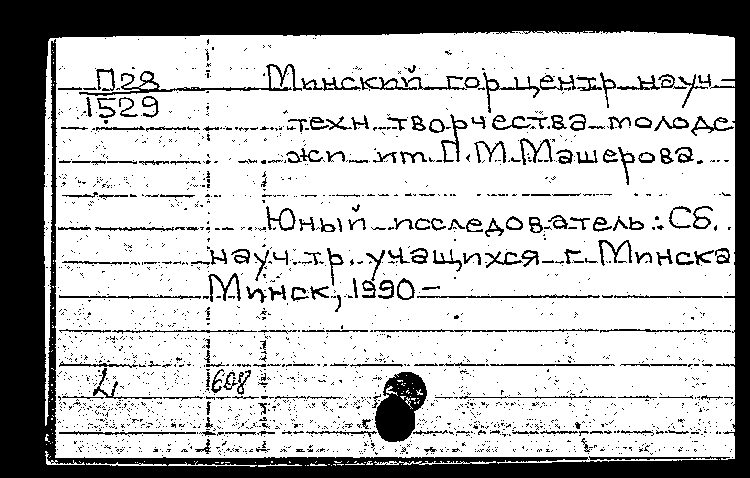 П28
1529
Минский гор центр науч-
техн творчества молоде
жи им. П.М.Машерова.
Юный исследователь: Сб.
науч тр. учащихся г Минска
Минск, 1990-
608